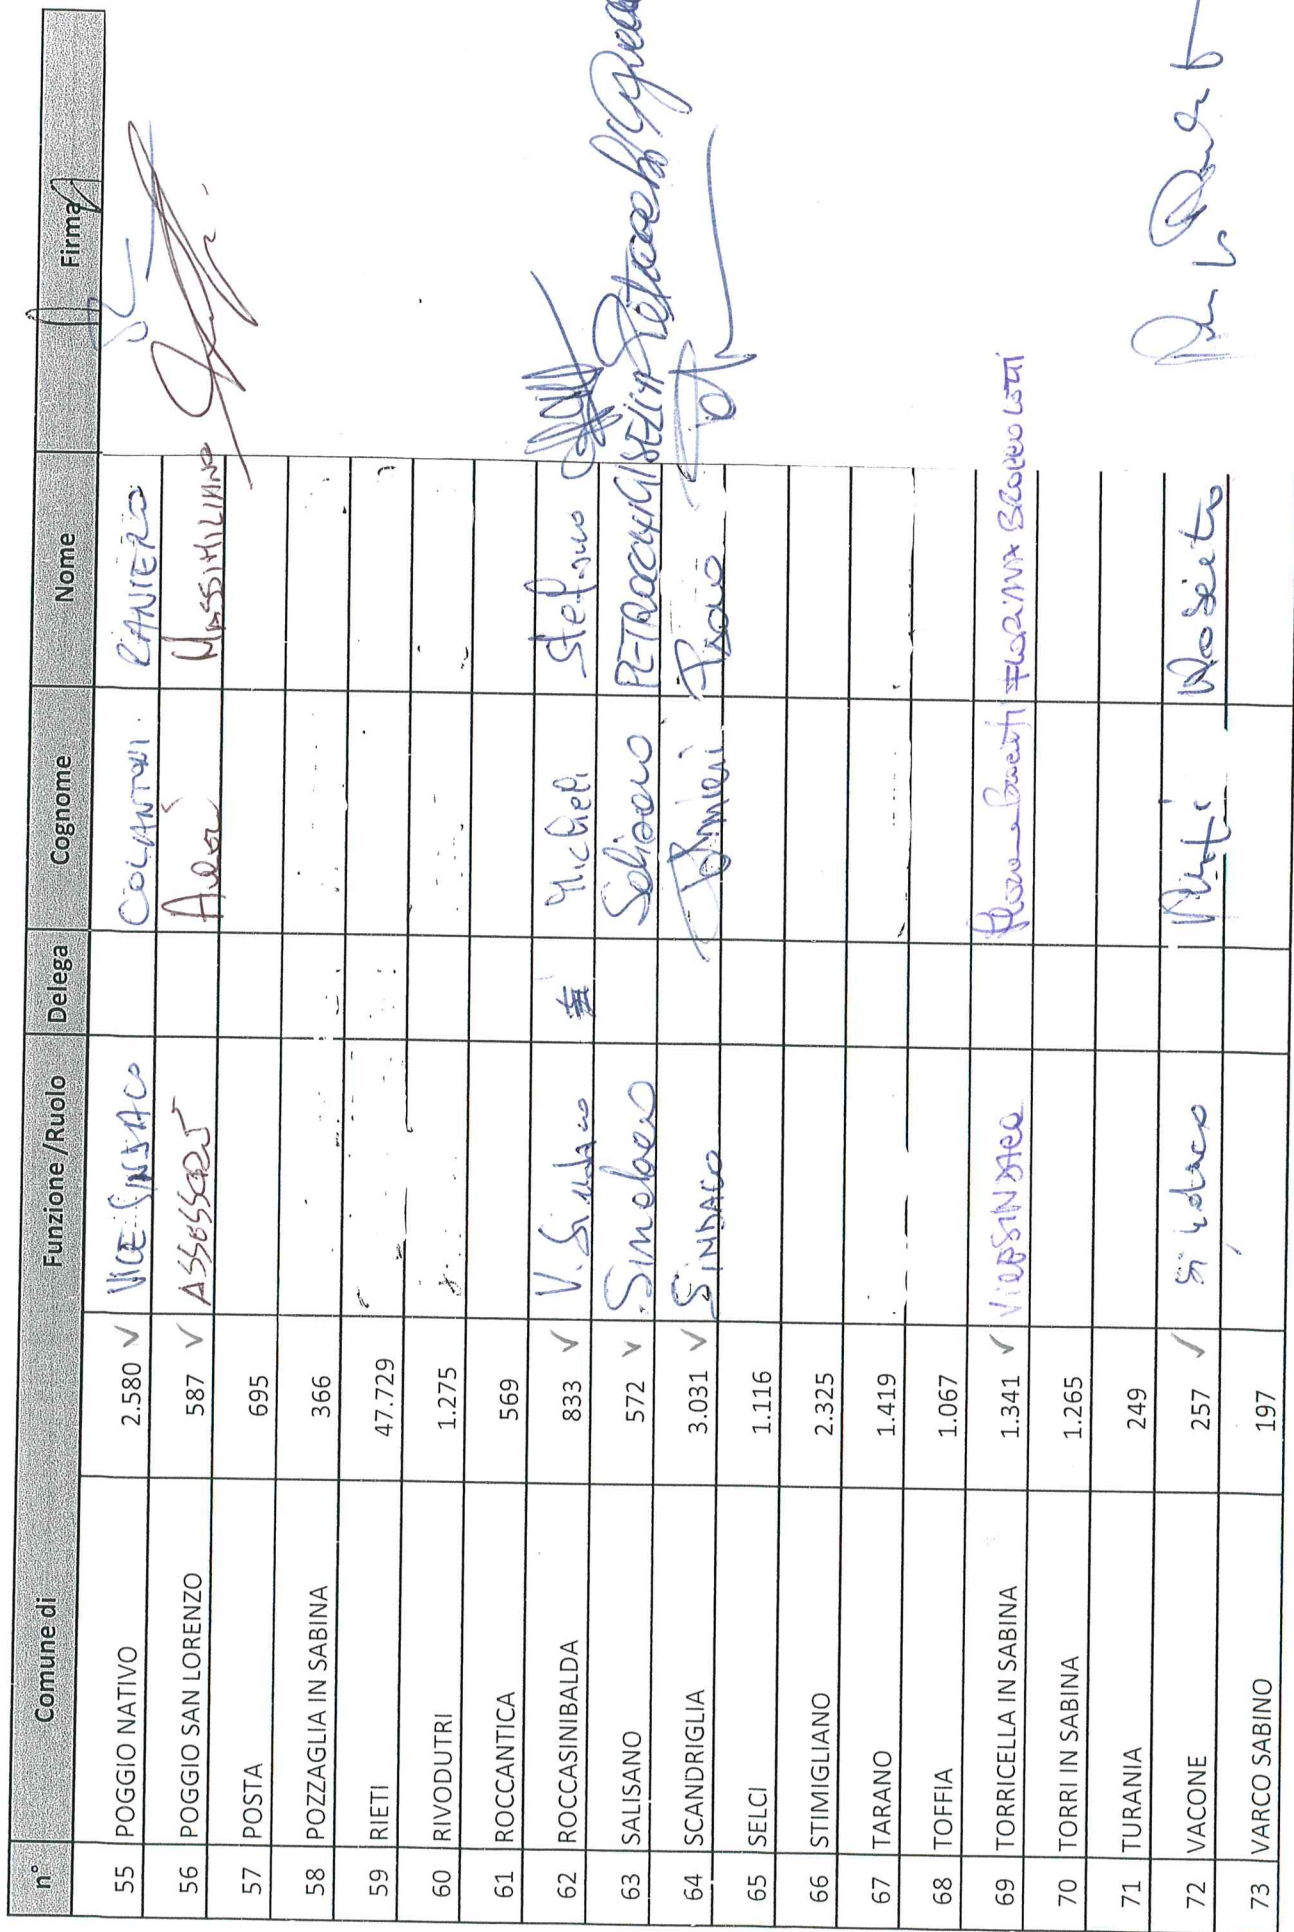 n° Comune di Funzione /Ruolo Delega Cognome Nome Firma
55 POGGIO NATIVO 2.580 V VICE SINDACO COLANTONI RANIERO
56 POGGIO SAN LORENZO 587 V ASSESSORE MASSIMILIANO
57 POSTA 695
58 POZZAGLIA IN SABINA 366
59 RIETI 47.729
60 RIVODUTRI 1.275
61 ROCCANTICA 569
62 ROCCASINIBALDA 833 V V. Sindaco Micheli Stefano
63 SALISANO 572 V Sindaco Salisano PETROCCHI GISELLA
64 SCANDRIGLIA 3.031 V SINDACO
65 SELCI 1.116
66 STIMIGLIANO 2.325
67 TARANO 1.419
68 TOFFIA 1.067
69 TORRICELLA IN SABINA 1.341 V VICESINDACO FLORIANA
70 TORRI IN SABINA 1.265
71 TURANIA 249
72 VACONE 257 V Sindaco
73 VARCO SABINO 197